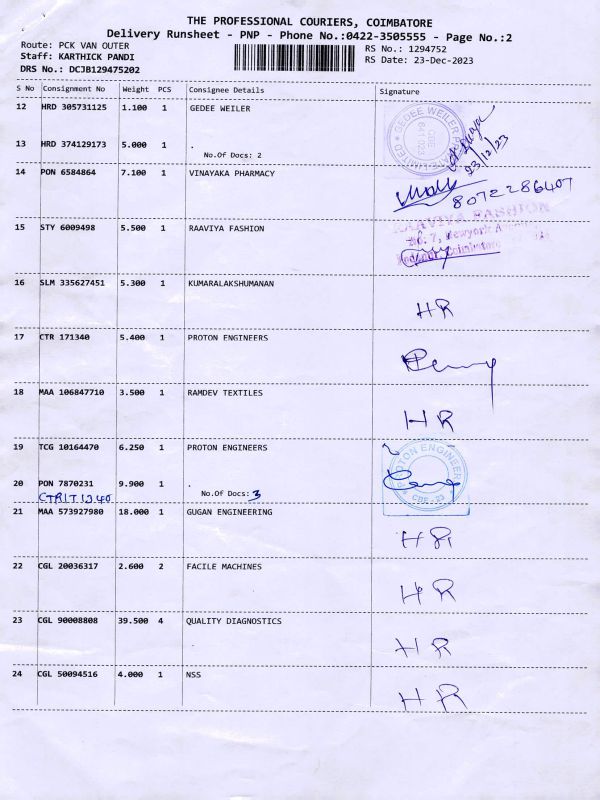 THE PROFESSIONAL COURIERS, COIMBATORE
Delivery Runsheet - PNP - Phone No.:0422-3505555 - Page No.:2
Route: PCK VAN OUTER
RS No.: 1294752
Staff: KARTHICK PANDI
RS Date: 23-Dec-2023
DRS No.: DCJB129475202
S No Consignment No Weight PCS Consignee Details Signature
12 HRD 305731125 1.100 1 GEDEE WEILER
13 HRD 374129173 5.000 1 .
No.Of Docs: 2
23/12/23
14 PON 6584864 7.100 1 VINAYAKA PHARMACY
8072286407
15 STY 6009498 5.500 1 RAAVIYA FASHION
RAAVIYA FASHION
No: 7, Newyork
Coimbatore
16 SLM 335627451 5.300 1 KUMARALAKSHUMANAN
HR
17 CTR 171340 5.400 1 PROTON ENGINEERS
18 MAA 106847710 3.500 1 RAMDEV TEXTILES
HR
19 TCG 10164470 6.250 1 PROTON ENGINEERS
PROTON ENGINEERS
CBE - 23
20 PON 7870231 9.900 1 .
No.Of Docs: 3
21 MAA 573927980 18.000 1 GUGAN ENGINEERING
HR
22 CGL 20036317 2.600 2 FACILE MACHINES
HR
23 CGL 90008808 39.500 4 QUALITY DIAGNOSTICS
HR
24 CGL 50094516 4.000 1 NSS
HR